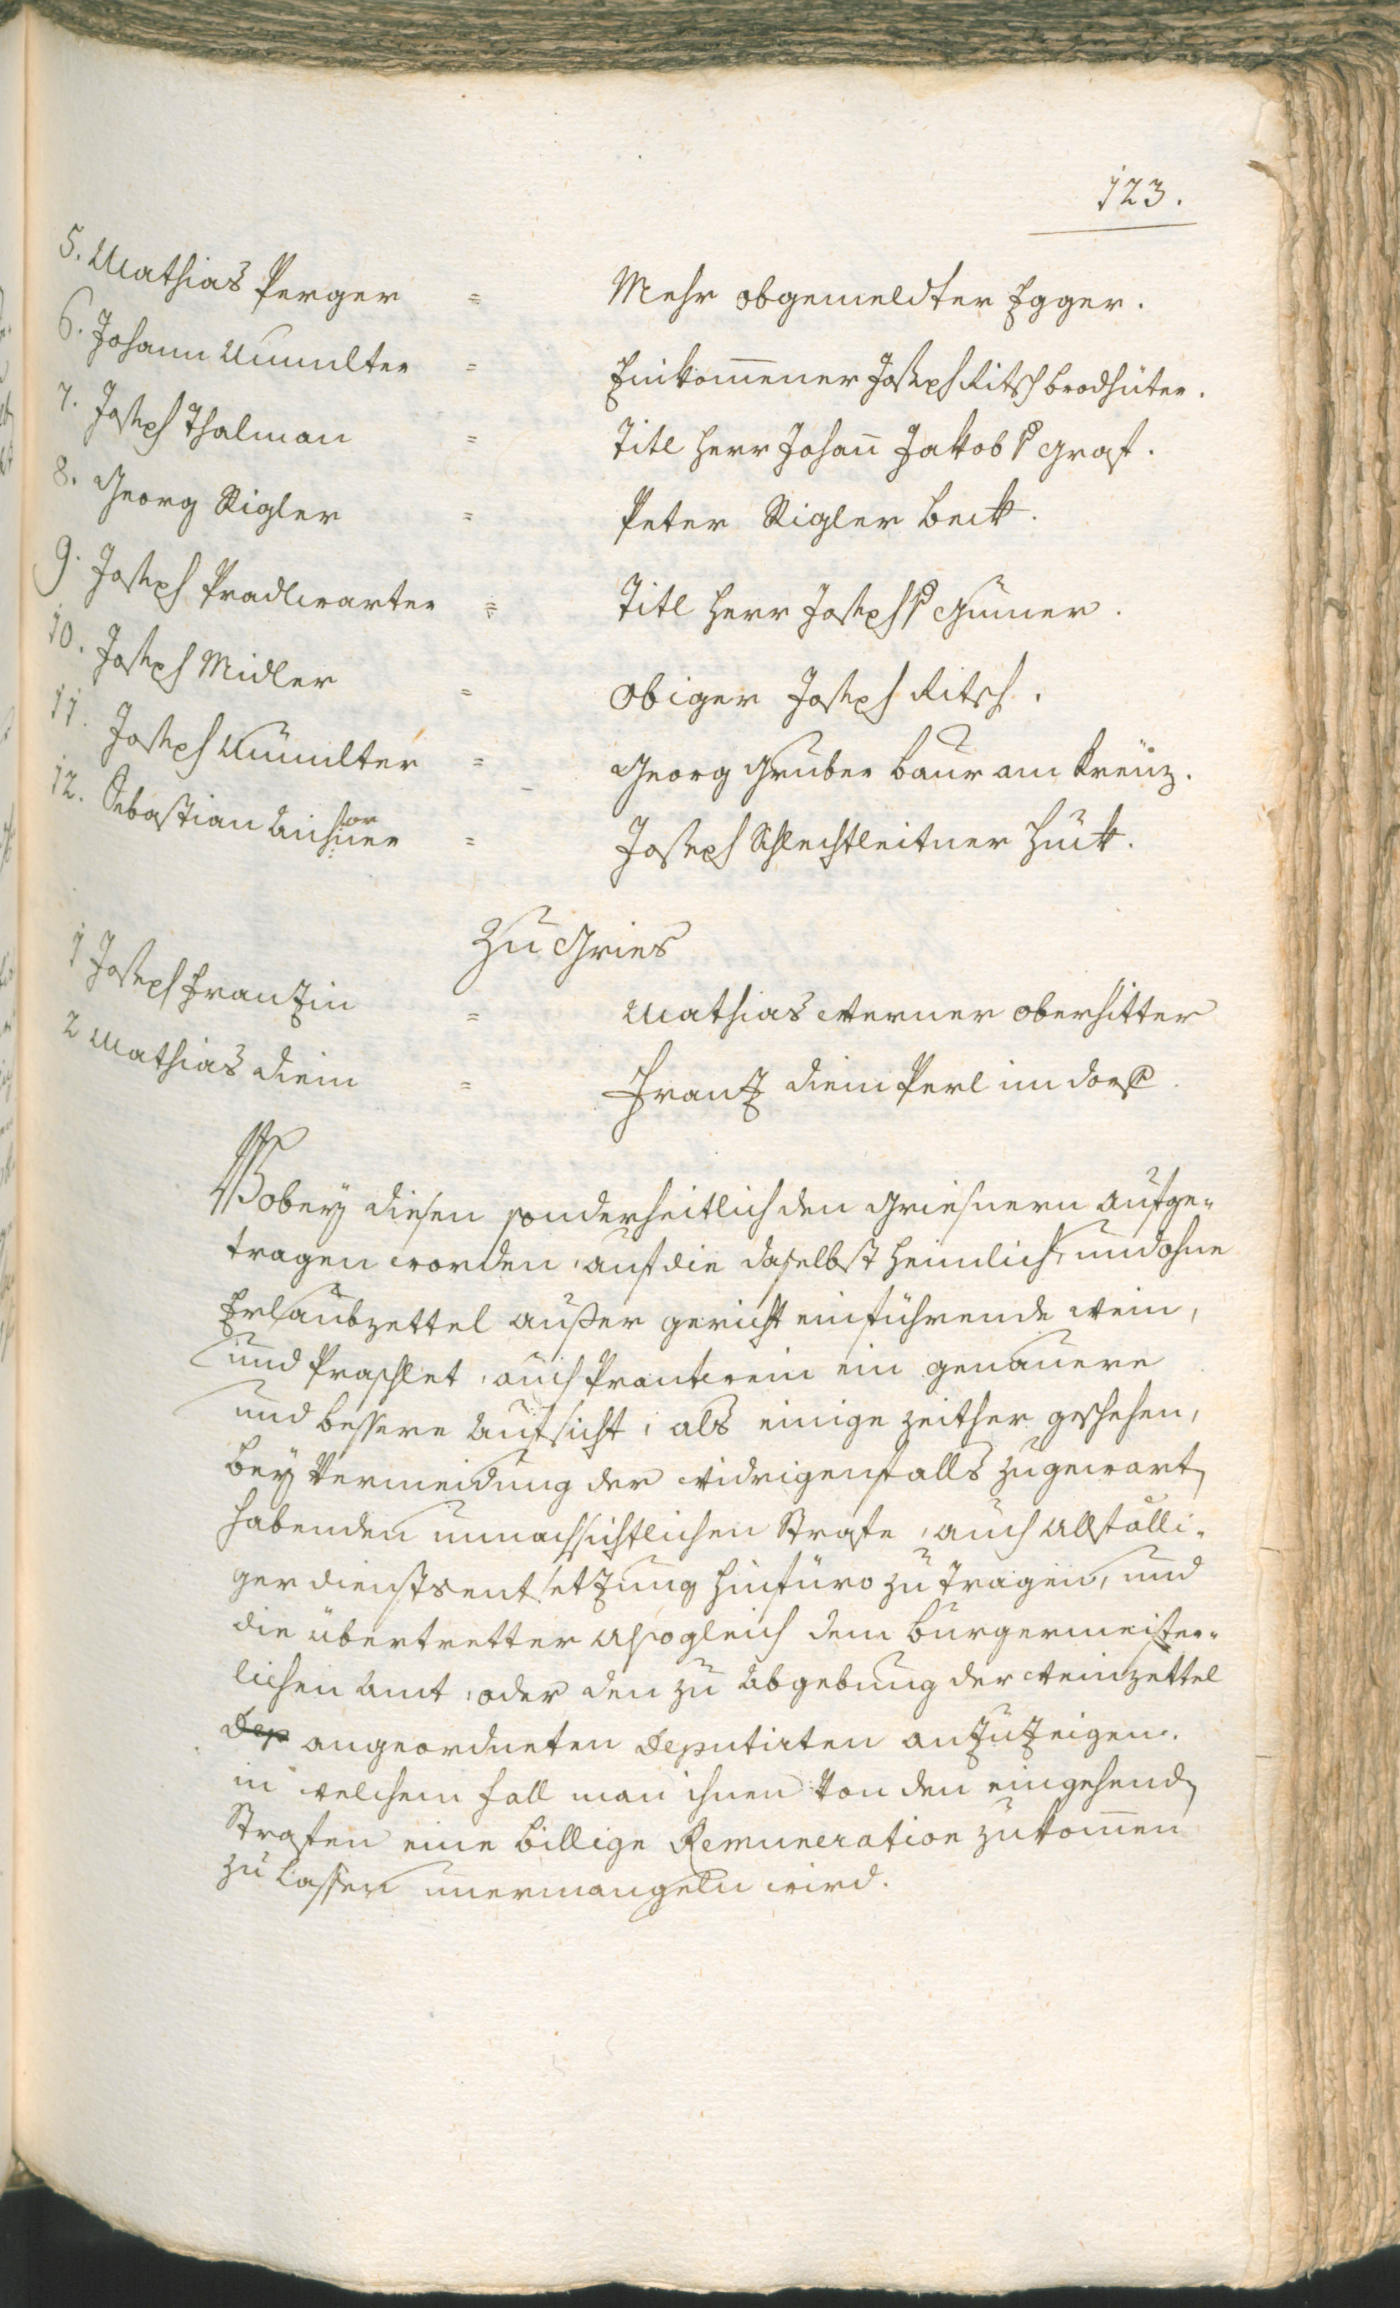 123.
5. Mathias Perger = Mehr obgemeldter Egger.
6. Johann Unnulter = Einkom̅ener Joseph Ritsch brodhüter.
7. Joseph Thalman = Titl Herr Johan̅ Jakob Graf.
8. Georg Rigler = Peter Rigler beck.
9. Joseph Pradlwarter = Titl Herr Joseph Gumer.
10. Joseph Midler = obiger Joseph Ritsch.
11. Joseph Unnulter = Georg Gruber baur am Kreuz.
12. Sebastian = Joseph Schlechtleitner Huck.
Zu Gries
1 Joseph Frantzin = Mathias Werner oberhitter
2 Mathias Diem = Frantz Diem Perl im dorf
Wobey diesen sonderheitlich den Griesnern aufge-
tragen worden, auf die daselbst heimlich, und ohne
Erlaubzettel außer gericht einführende Wein,
und Praschlet, auch Prantwein ein genauere
und bessere Aufsicht, als einige zeither geschehen,
bey Vermeidung der widrigenfalls zugewart
habenden unnachsichtlichen Strafe, auch allfälli-
ger dienstsentsetzung hinfüro zu tragen, und
die übertretter alsogleich dem burgermeister-
lichen Amt, oder den zu Abgebung der Weinzettel
Dep angeordneten Deputirten anzuzeigen.
in welchem fall man ihnen von den eingehend
Strafen eine billige Remuneration zukom̅en
zu lassen unermangeln wird.